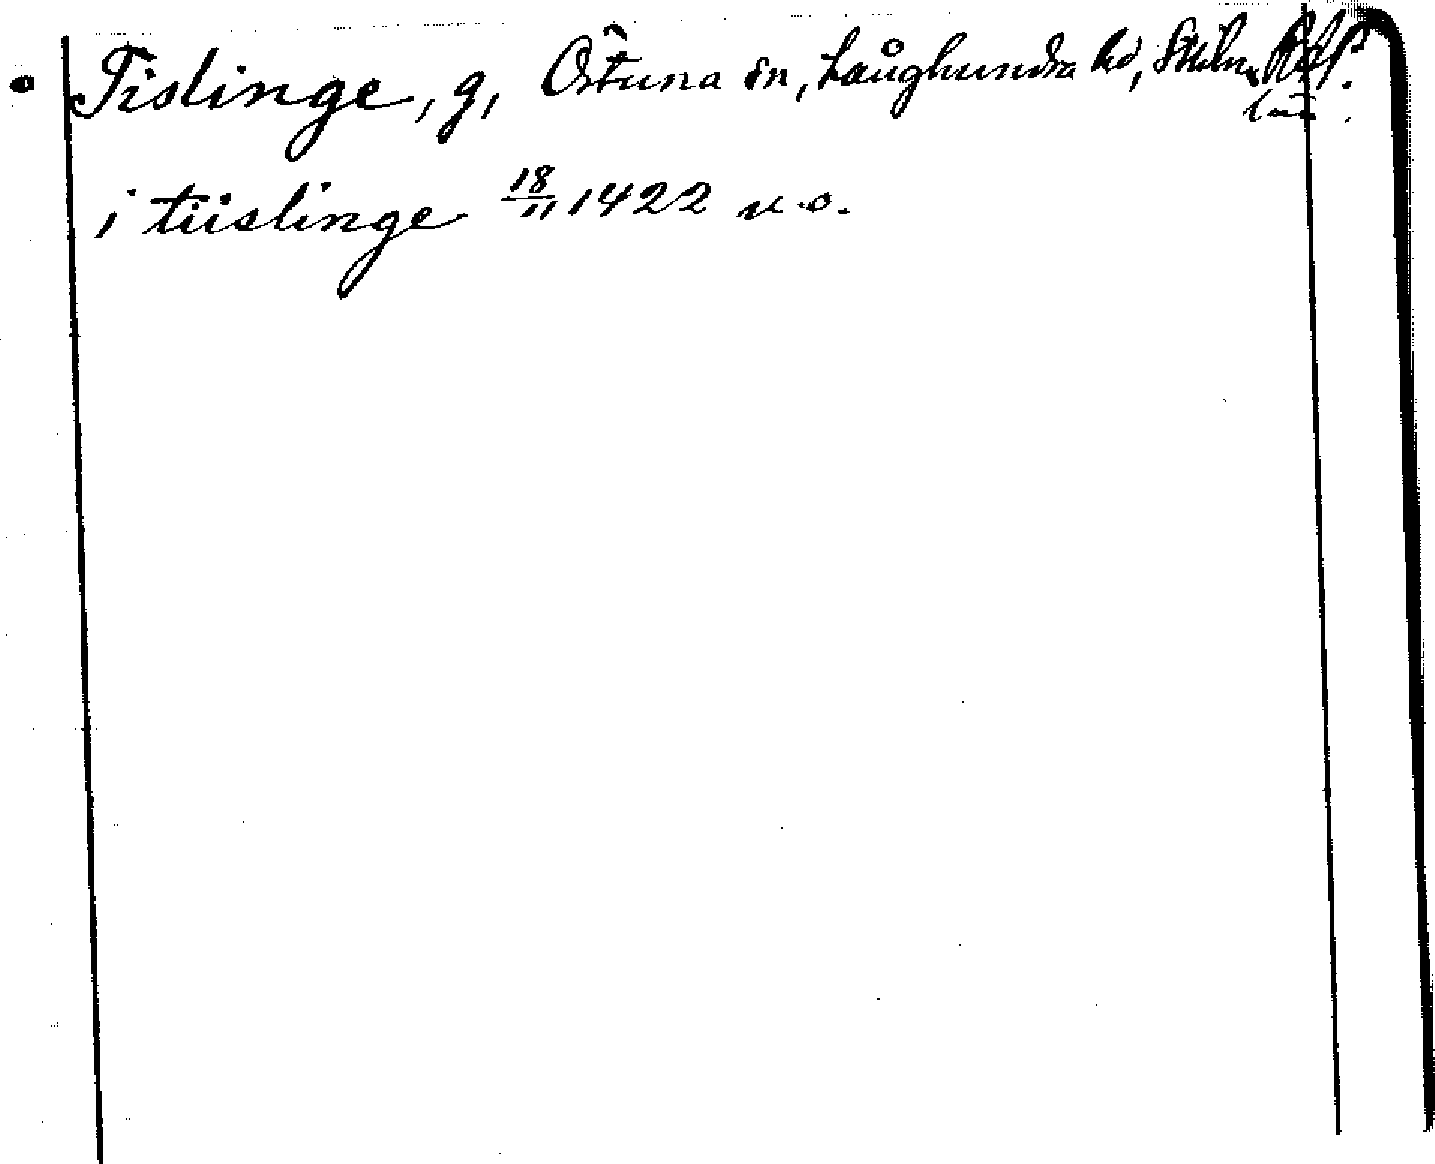 Tislinge, g, Östuna sn, Långhundra hd, Sthlms
län.
i tiislinge 18/11 1422 v.o.